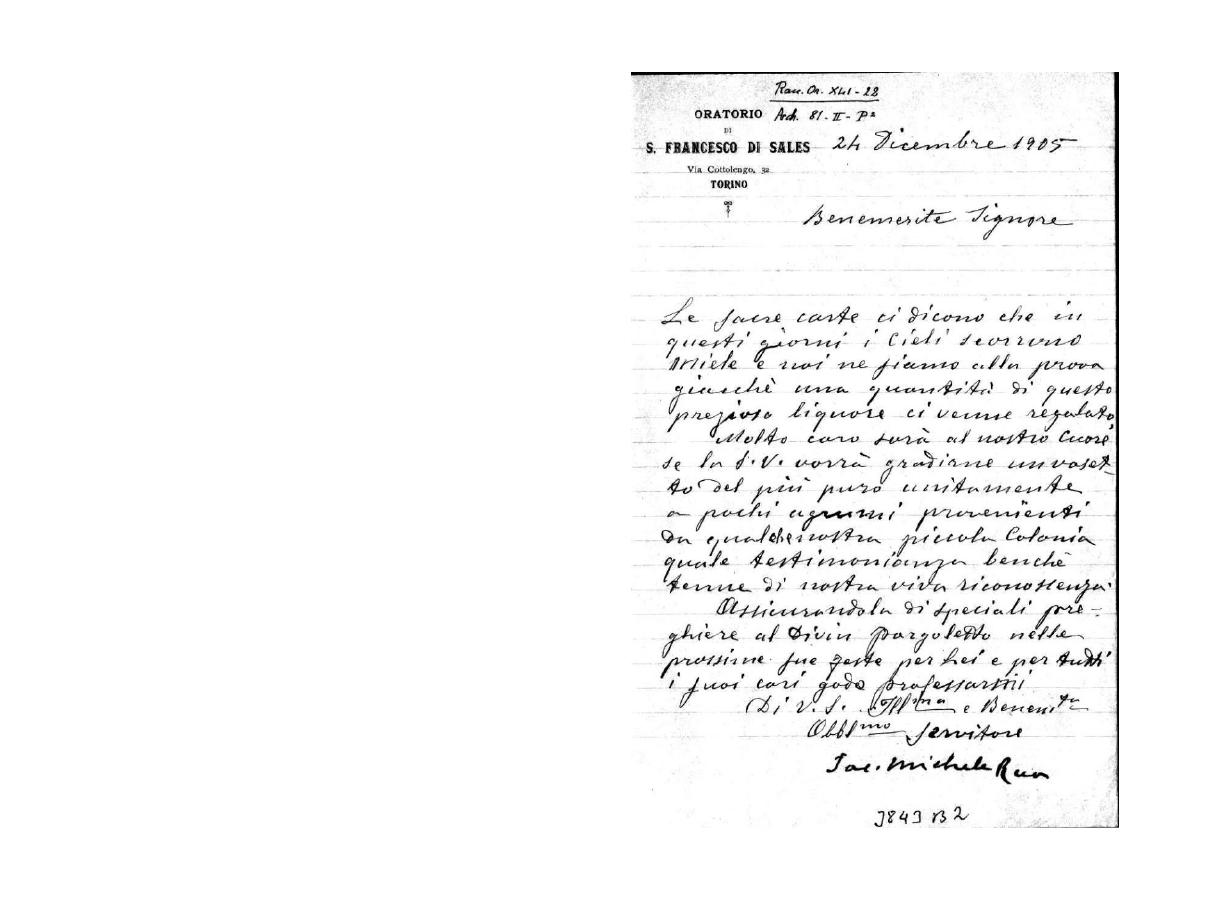 Racc. On. XLI-22
ORATORIO Arch. 81-II-Pª
DI
S. FRANCESCO DI SALES 24 Dicembre 1905
Via Cottolengo, 32
TORINO
Benemerito Signore
Le sacre carte ci dicono che in
questi giorni i Cieli scorrono
Miele e noi ne siamo alla prova
giacchè una quantità di questo
prezioso liquore ci venne regalato,
Molto caro sarà al nostro Cuore
se la S. V. vorrà gradirne un vaset-
to del più puro unitamente
a pochi agrumi provenienti
da qualche nostra piccola Colonia
quale testimonianza benchè
tenue di nostra viva riconoscenza
Assicurandola di speciali pre-
ghiere al Divin pargoletto nelle
prossime sue feste per Lei e per tutti
i suoi cari godo professarmi
Di V. S. Ill.ma e Benem.ta
Obbl.mo servitore
Sac. Michele Rua
3843 B2